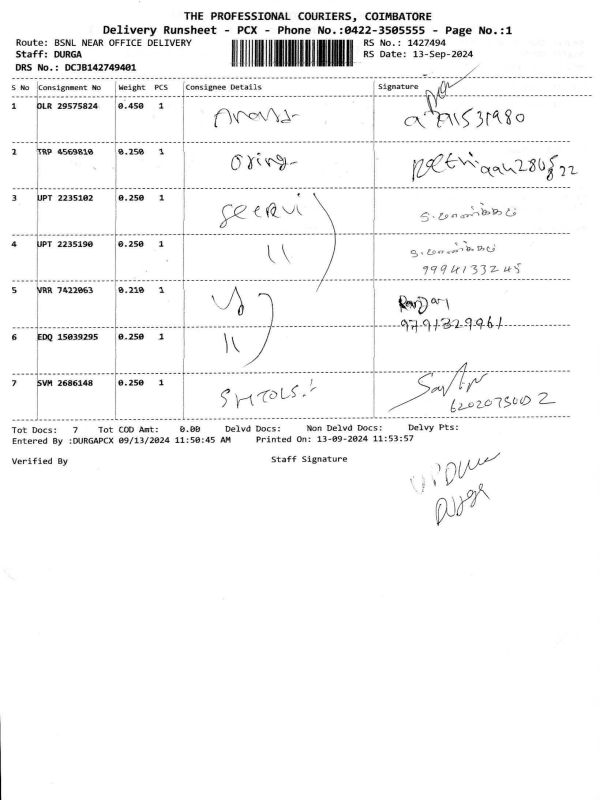 THE PROFESSIONAL COURIERS, COIMBATORE
Delivery Runsheet - PCX - Phone No.:0422-3505555 - Page No.:1
Route: BSNL NEAR OFFICE DELIVERY RS No.: 1427494
Staff: DURGA RS Date: 13-Sep-2024
DRS No.: DCJB142749401
S No Consignment No Weight PCS Consignee Details Signature
1 OLR 29575824 0.450 1
2 TRP 4569810 0.250 1
3 UPT 2235102 0.250 1 Seervi
4 UPT 2235190 0.250 1 11
9994133245
5 VRR 7422063 0.210 1
9791329961
6 EDQ 15039295 0.250 1 11
7 SVM 2686148 0.250 1
Tot Docs: 7 Tot COD Amt: 0.00 Delvd Docs: Non Delvd Docs: Delvy Pts:
Entered By :DURGAPCX 09/13/2024 11:50:45 AM Printed On: 13-09-2024 11:53:57
Verified By Staff Signature
Durga